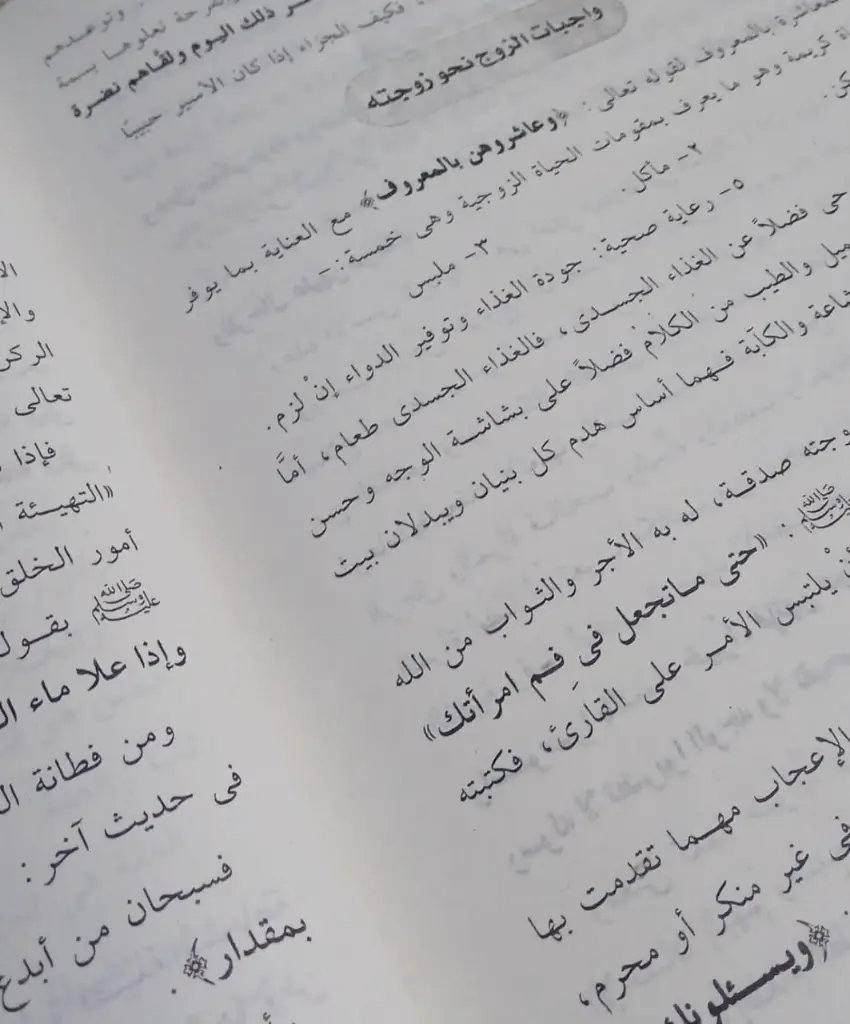 وتوعدهم
ذلك اليوم ولقاهم نضرة
فكيف الجزاء إذا كان الأسير حبيبًا
واجبات الزوج نحو زوجته
بالمعروف لقوله تعالى: ﴿وعاشروهن بالمعروف﴾ مع العناية بما يوفر
كريمة وهو ما يعرف بمقومات الحياة الزوجية وهى خمسة:-
٢- مأكل. ٣- ملبس
٥- رعاية صحية: جودة الغذاء وتوفير الدواء إن لزم.
فضلاً عن الغذاء الجسدى، فالغذاء الجسدى طعام، أمَّا
والطيب من الكلام فضلاً على بشاشة الوجه وحسن
والكآبة فهما أساس هدم كل بنيان ويبدلان بيت
صدقة، له به الأجر والثواب من الله
ﷺ: «حتى ماتجعل فى فِم امرأتك»
يلتبس الأمر على القارئ، فكتبته
الإعجاب مهما تقدمت بها
فى غير منكر أو محرم،
﴿ويسئلونك
الركن
تعالى
فإذا
«التهيئة
أمور الخلق
ﷺ بقوله
وإذا علا ماء
ومن فطانة
فى حديث آخر:
فسبحان من أبدع
بمقدار﴾.